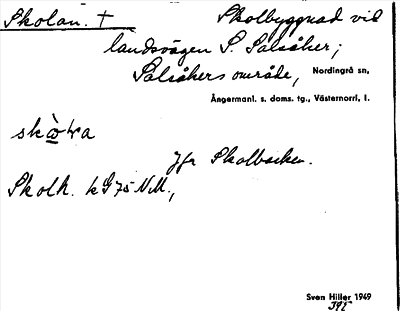 Skolan. † Skolbyggnad vid
landsvägen S. Salsåker;
Salsåkers område, Nordingrå sn,
Ångermanl. s. doms. tg., Västernorrl. l.
jfr Skolbacken.
Skolh. k
Sven Hiller 1949